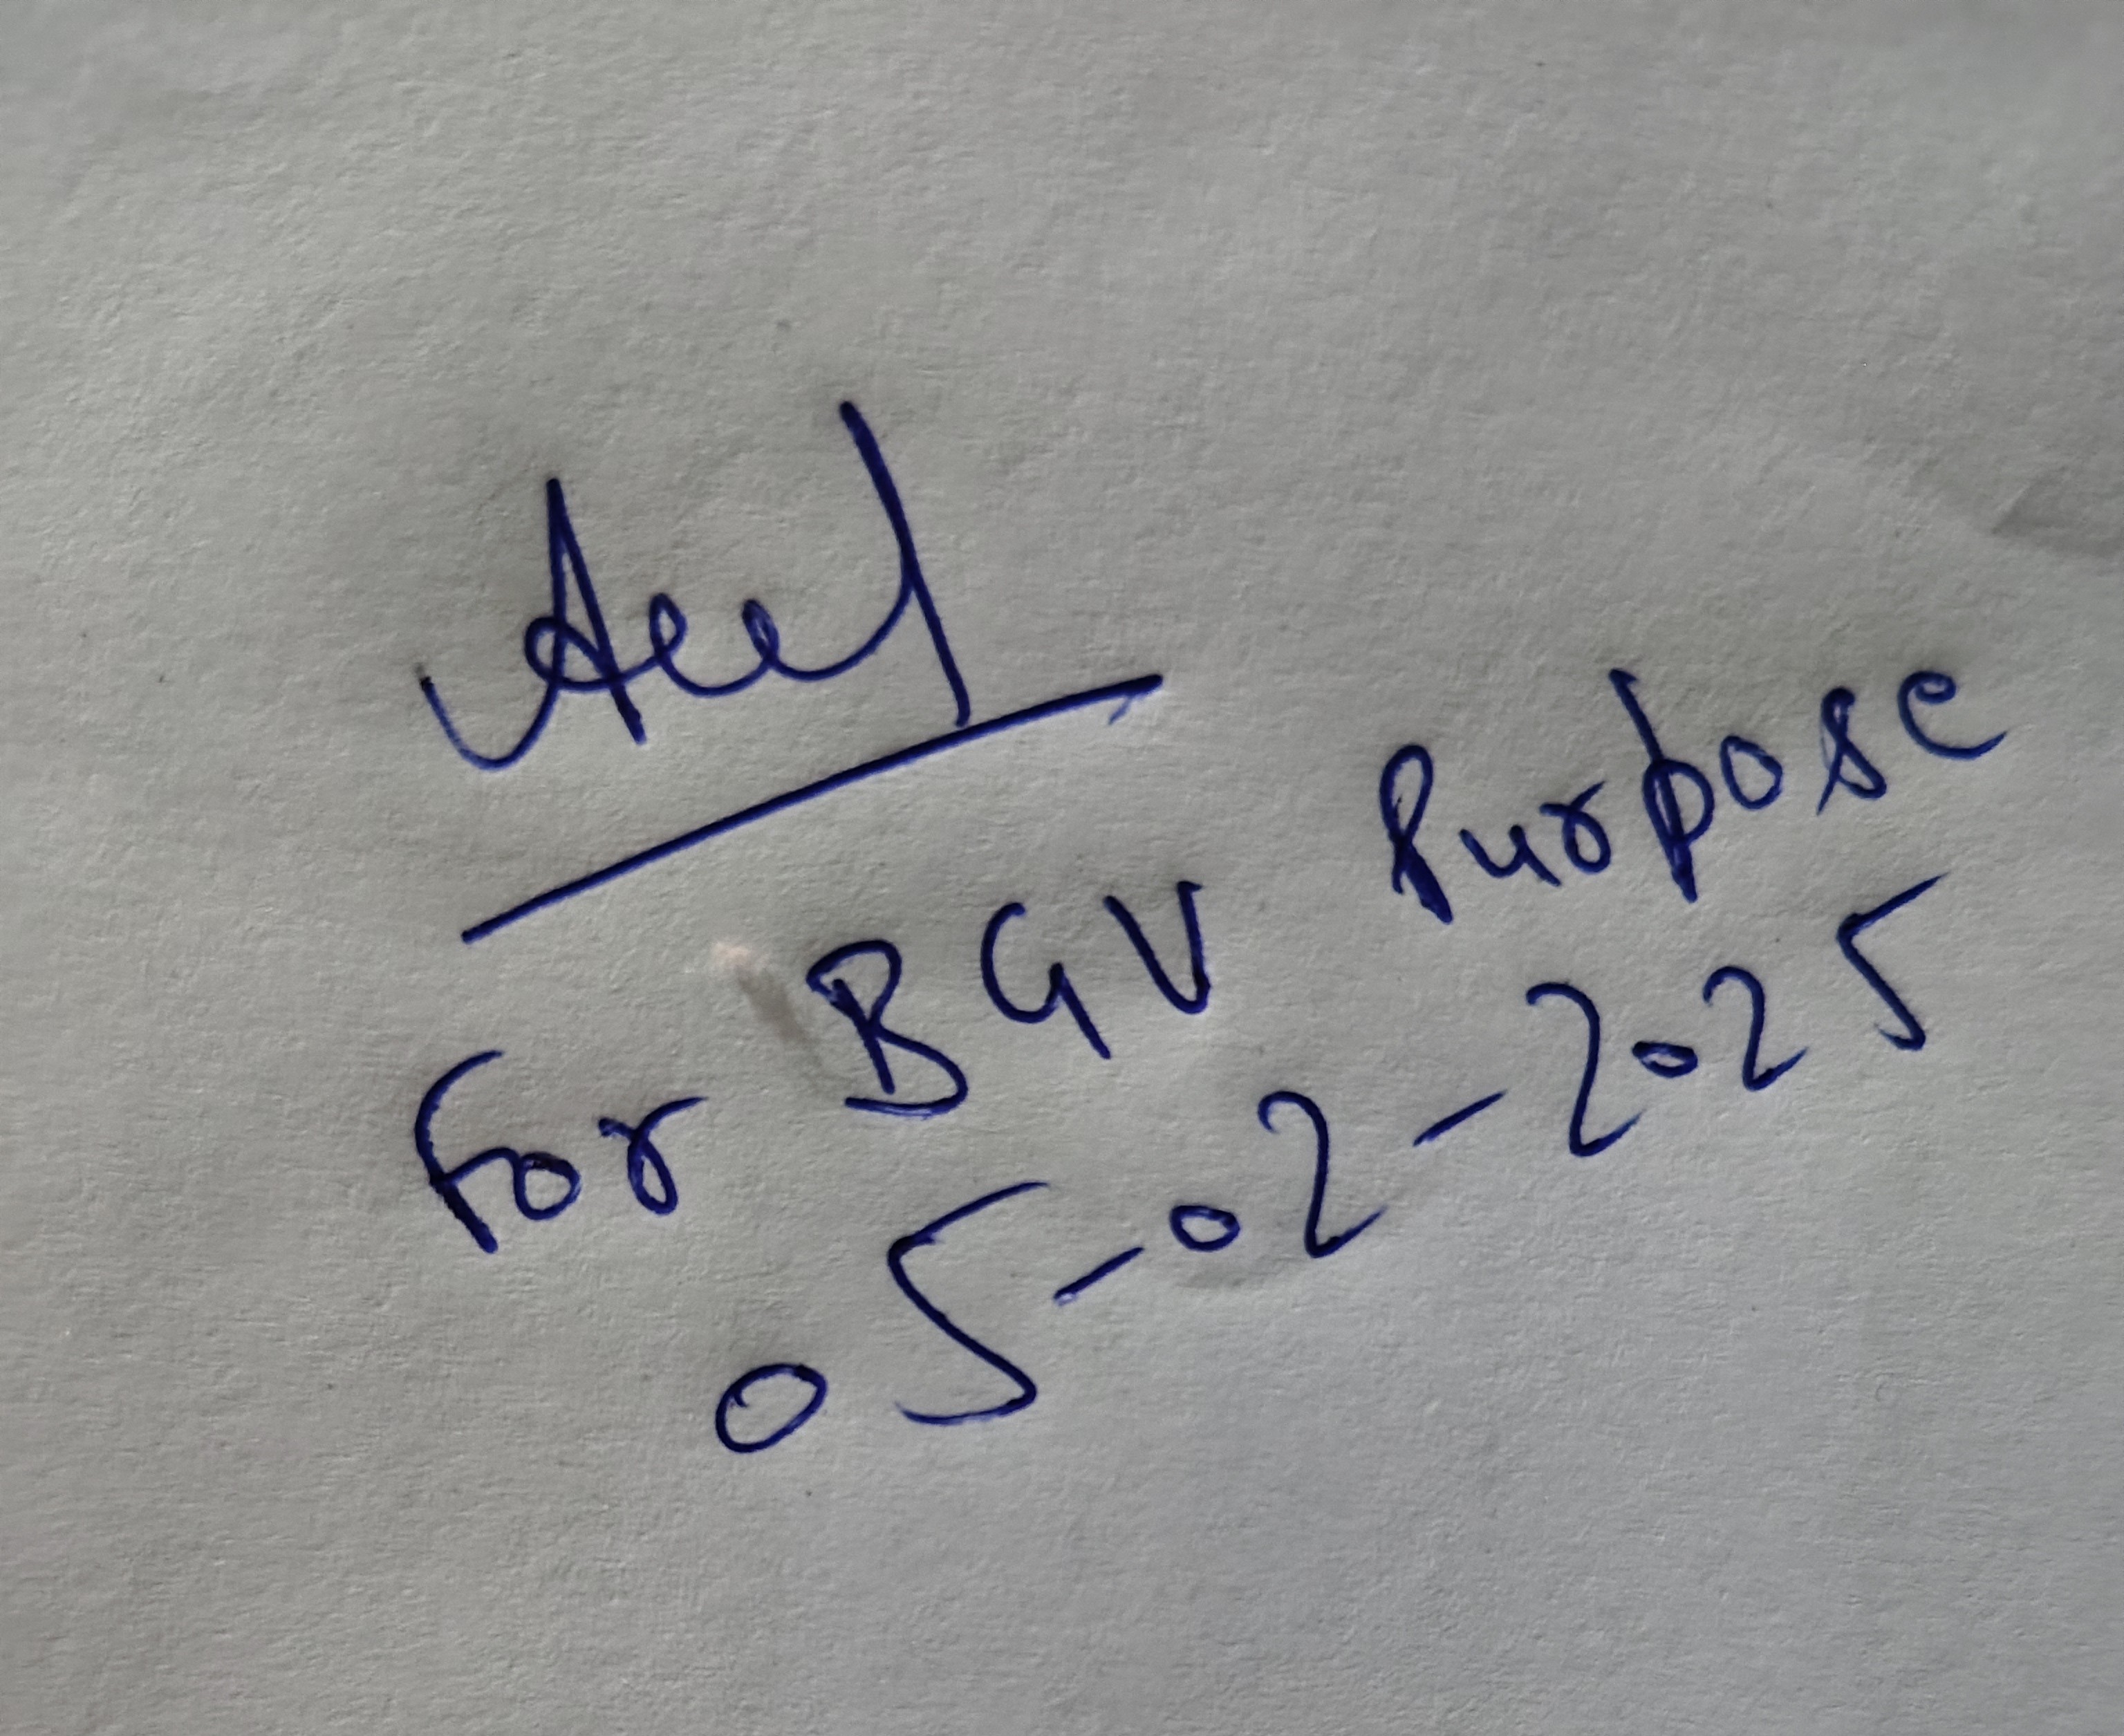 For BGV Purpose
05-02-2025